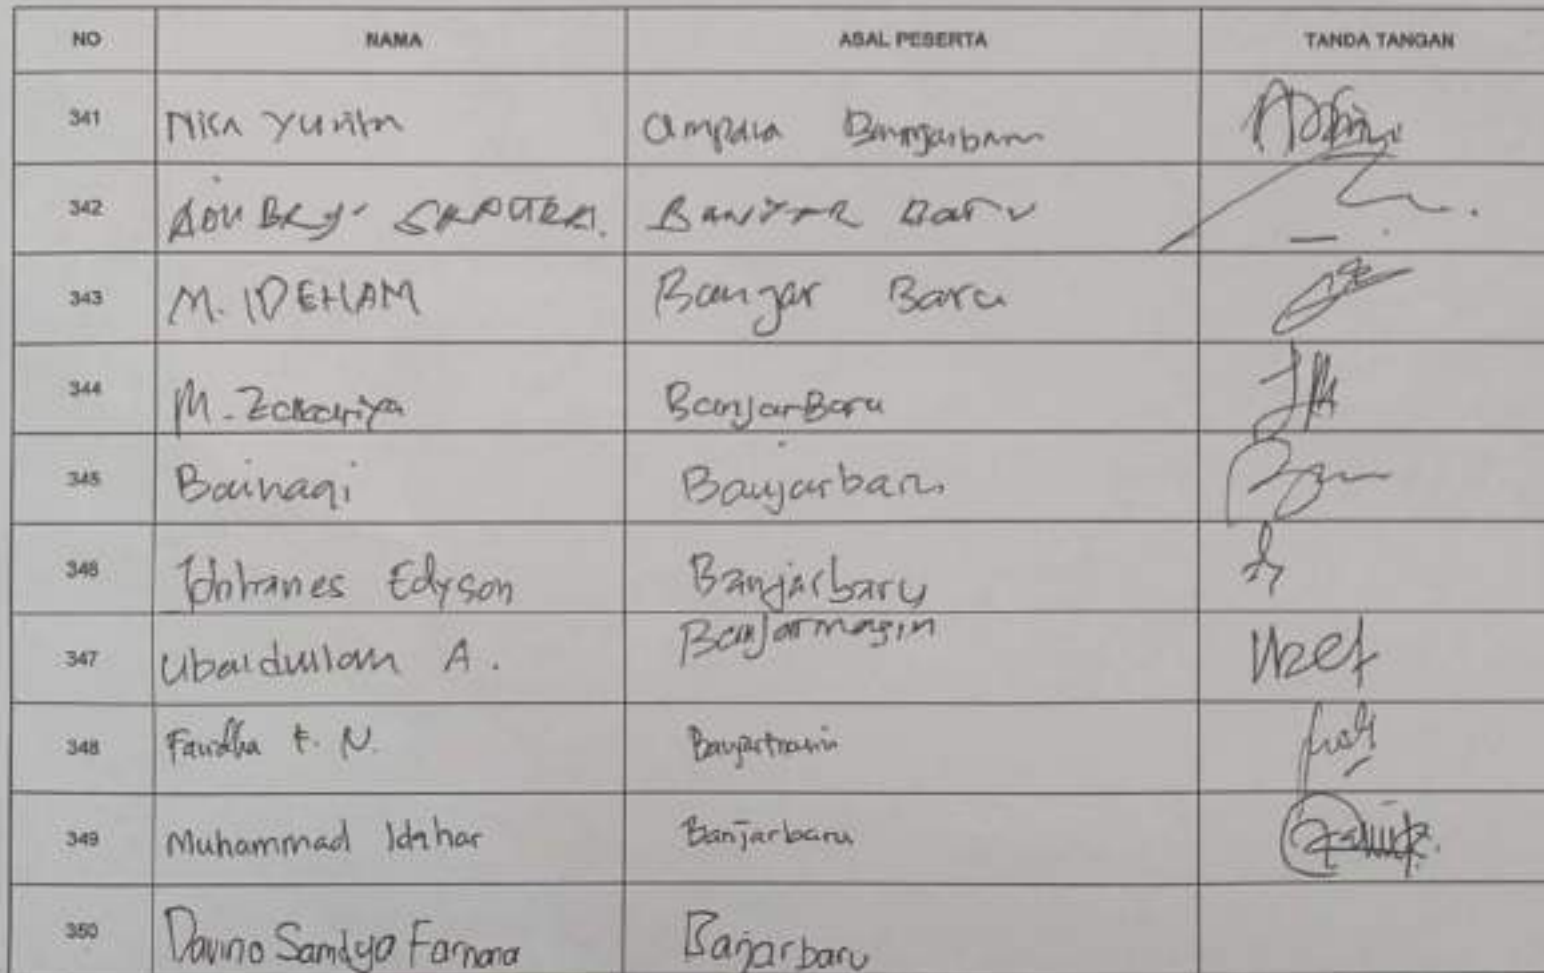 NO NAMA ASAL PESERTA TANDA TANGAN
341 Nisa Yunita Banjarbaru
342 SAPUTRA. BANJAR Baru
343 M. IDEHAM Banjar Baru
344 M. Zakariya BanjarBaru
345 Bainaqi Banjarbaru
346 Johhanes Edyson Banjarbaru
347 Ubaidullah A. Banjarmasin
348 Faridha F. N. Banjarmasin
349 Muhammad Idzhar Banjarbaru
350 Davino Samdya Farnana Banjarbaru